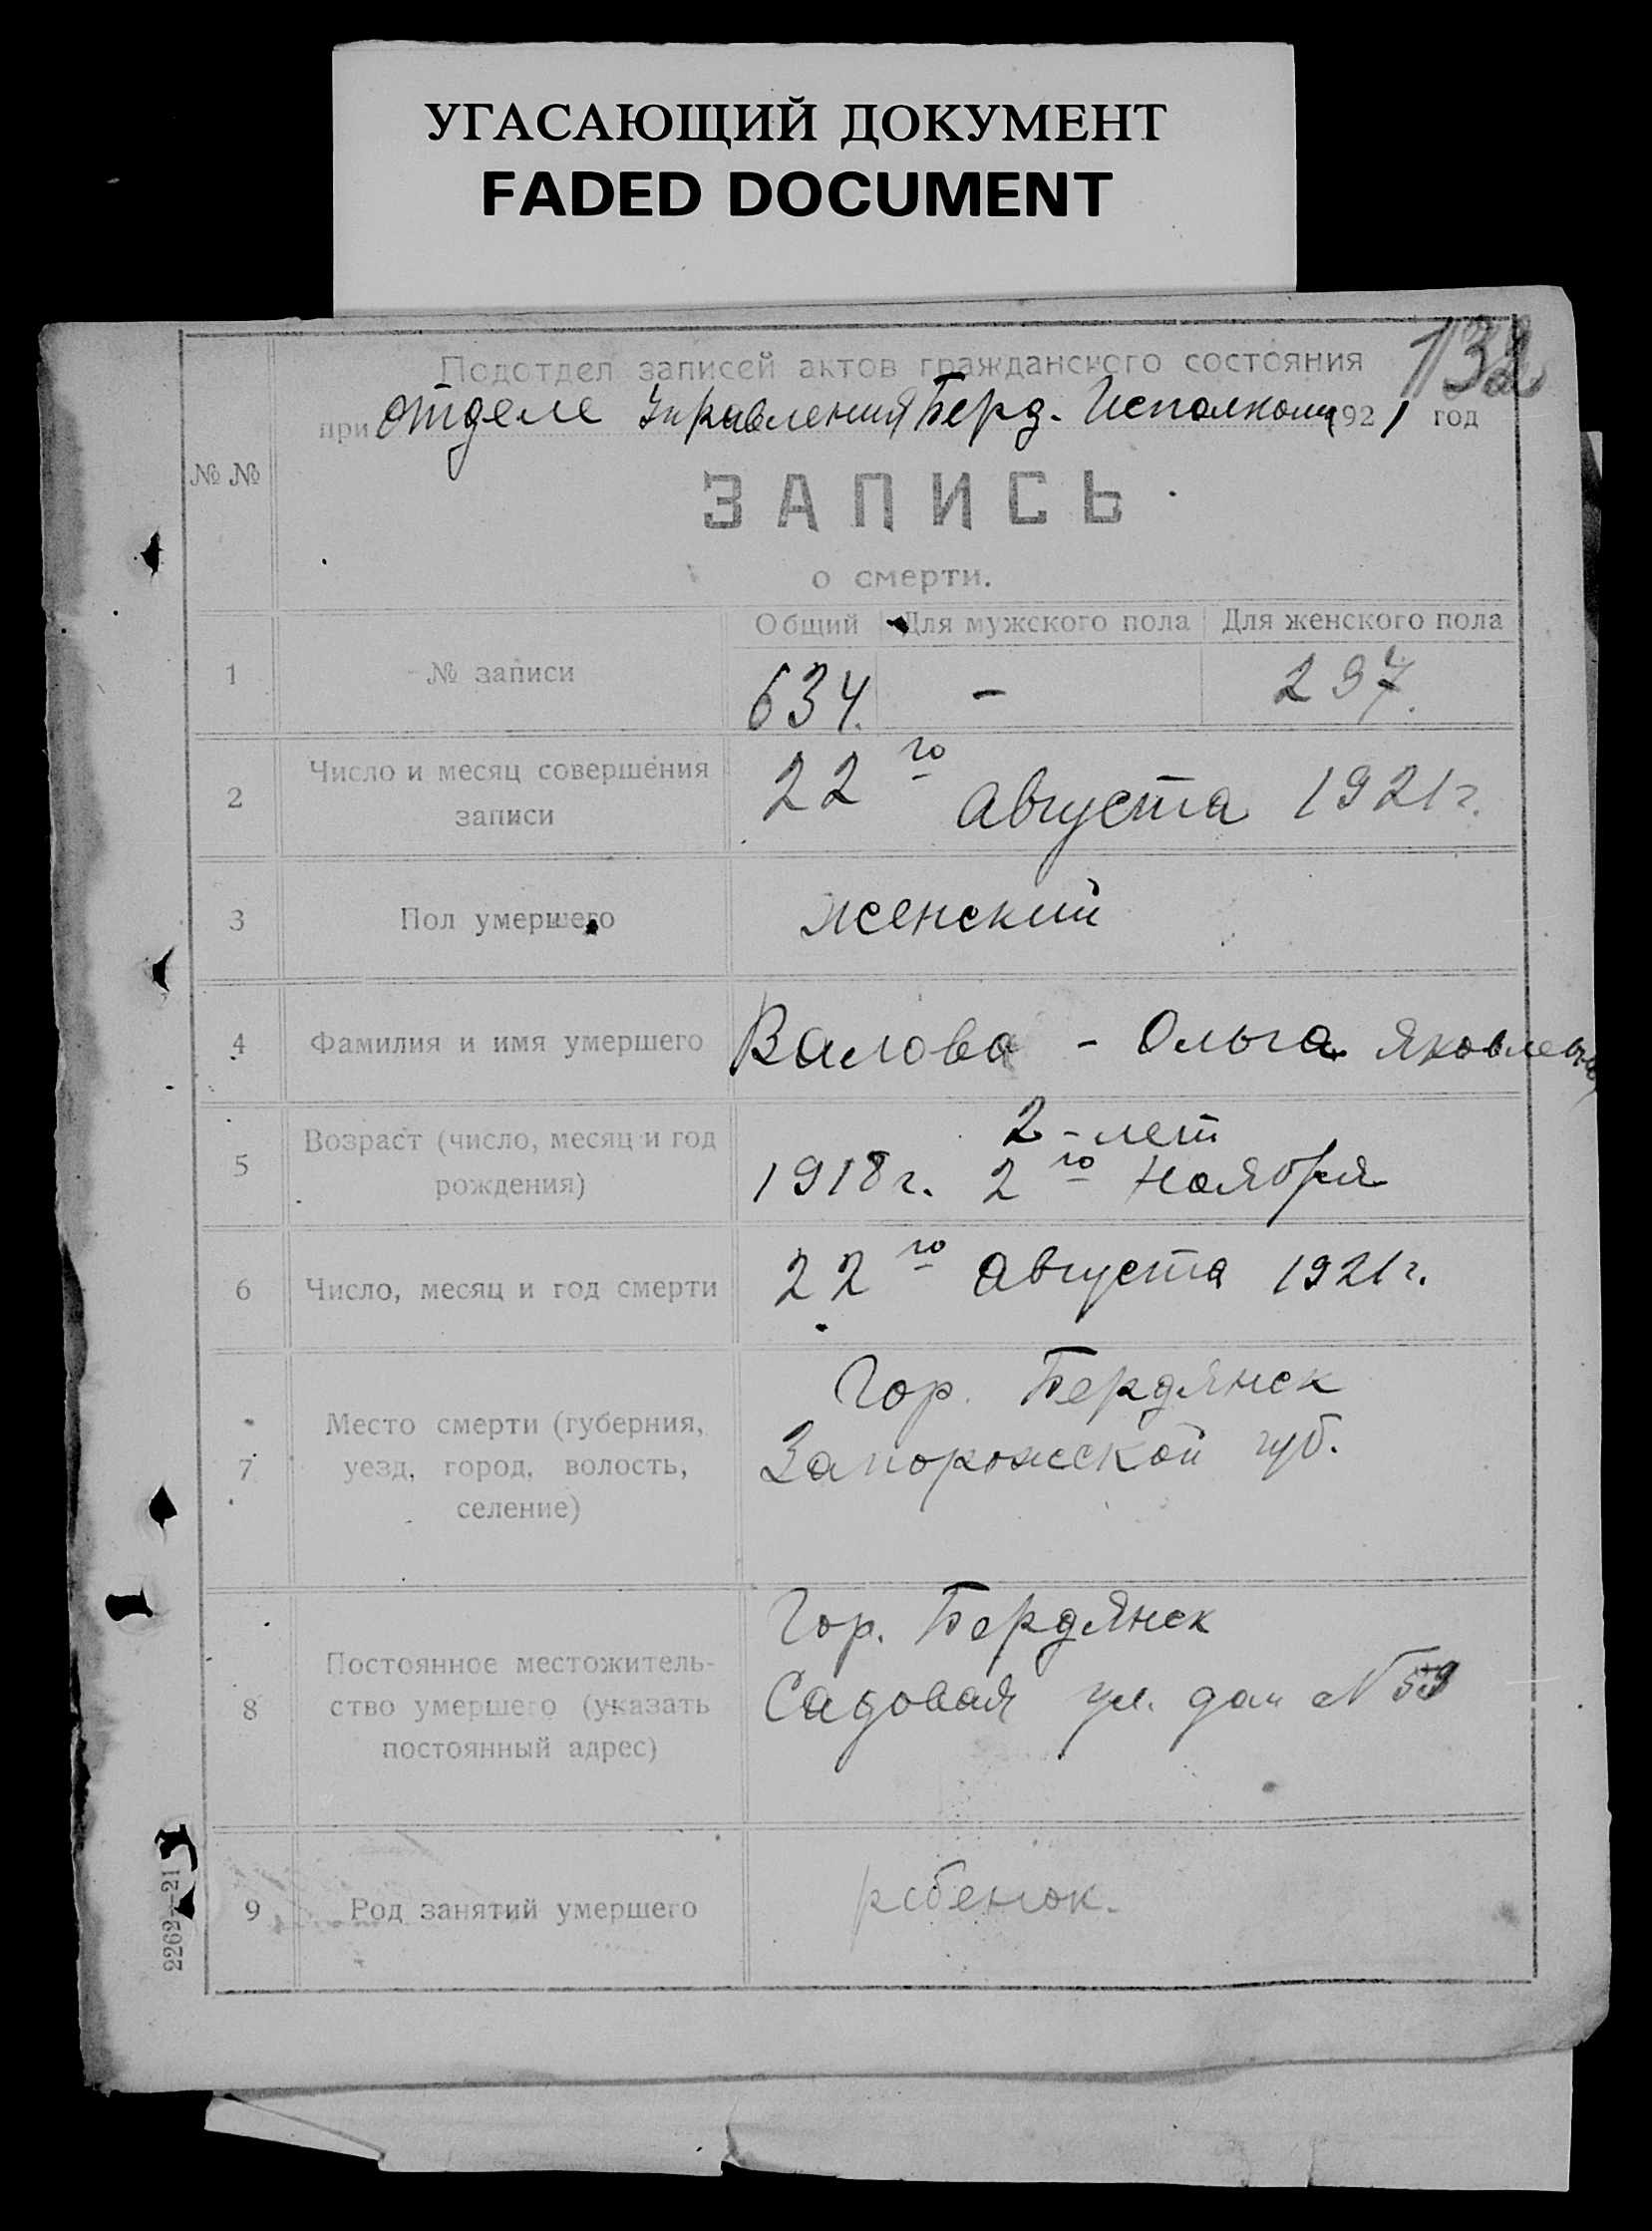 УГАСАЮЩИЙ ДОКУМЕНТ
FADED DOCUMENT
132
Подотдел записей актов гражданского состояния
при отделе Управления Берд. Исполкома 1921 год
№ №
ЗАПИСЬ
о смерти.
Общий Для мужского пола Для женского пола
1 № записи 634. - 297.
2 Число и месяц совершения
записи
22го Августа 1921 г.
3 Пол умершего женский
4 Фамилия и имя умершего Валова - Ольга Яковлевна
5 Возраст (число, месяц и год
рождения)
2-лет
1918 г. 2го Ноября
6 Число, месяц и год смерти 22го Августа 1921 г.
7 Место смерти (губерния,
уезд, город, волость,
селение)
Гор. Бердянск
Запорожской губ.
8 Постоянное местожитель-
ство умершего (указать
постоянный адрес)
Гор. Бердянск
Садовая ул. дом №
9 Род занятий умершего ребенок.
2262—21